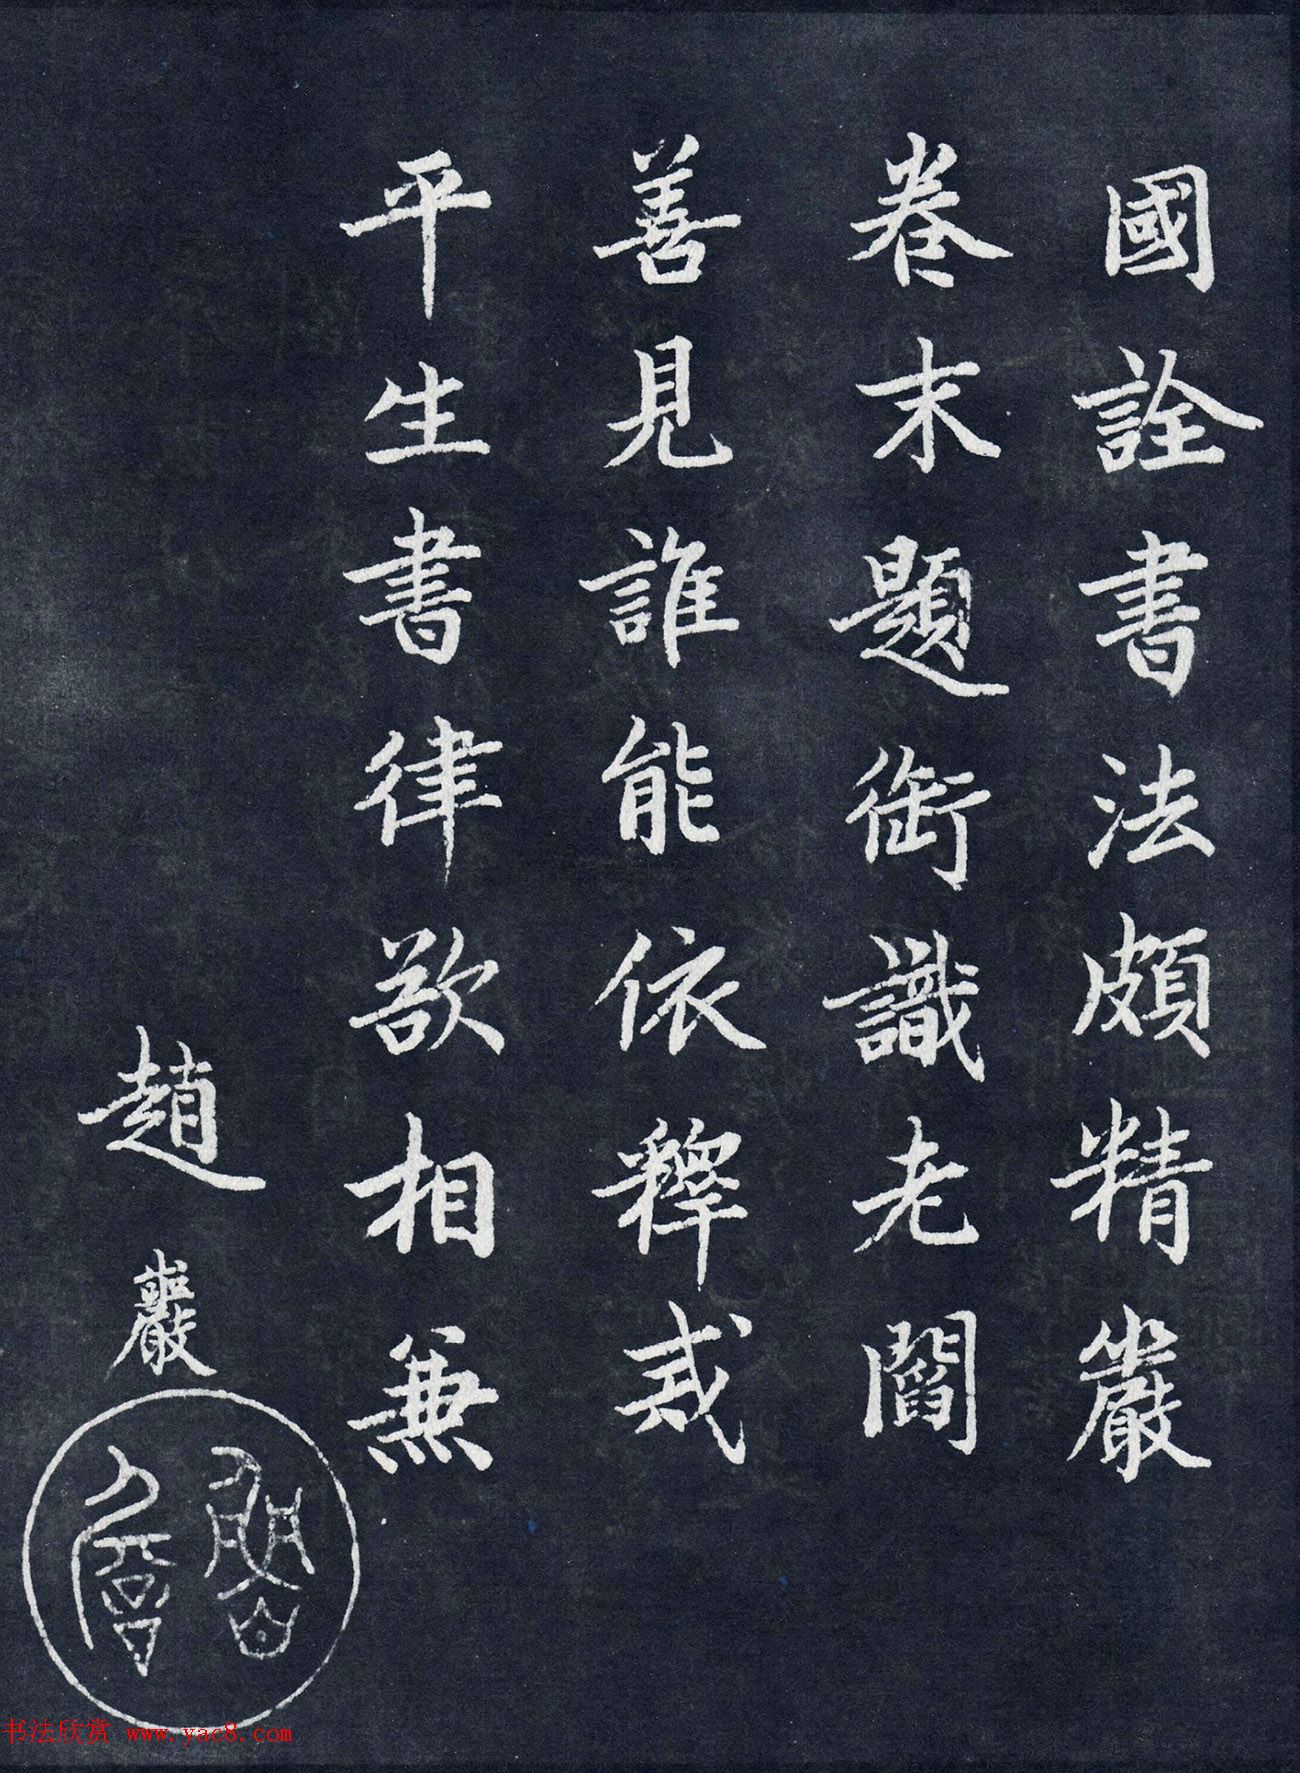 國詮書法頗精嚴
卷末題銜識老閻
善見誰能依釋戒
平生書律欲相兼
趙
巖
书法欣赏 www.yac8.com